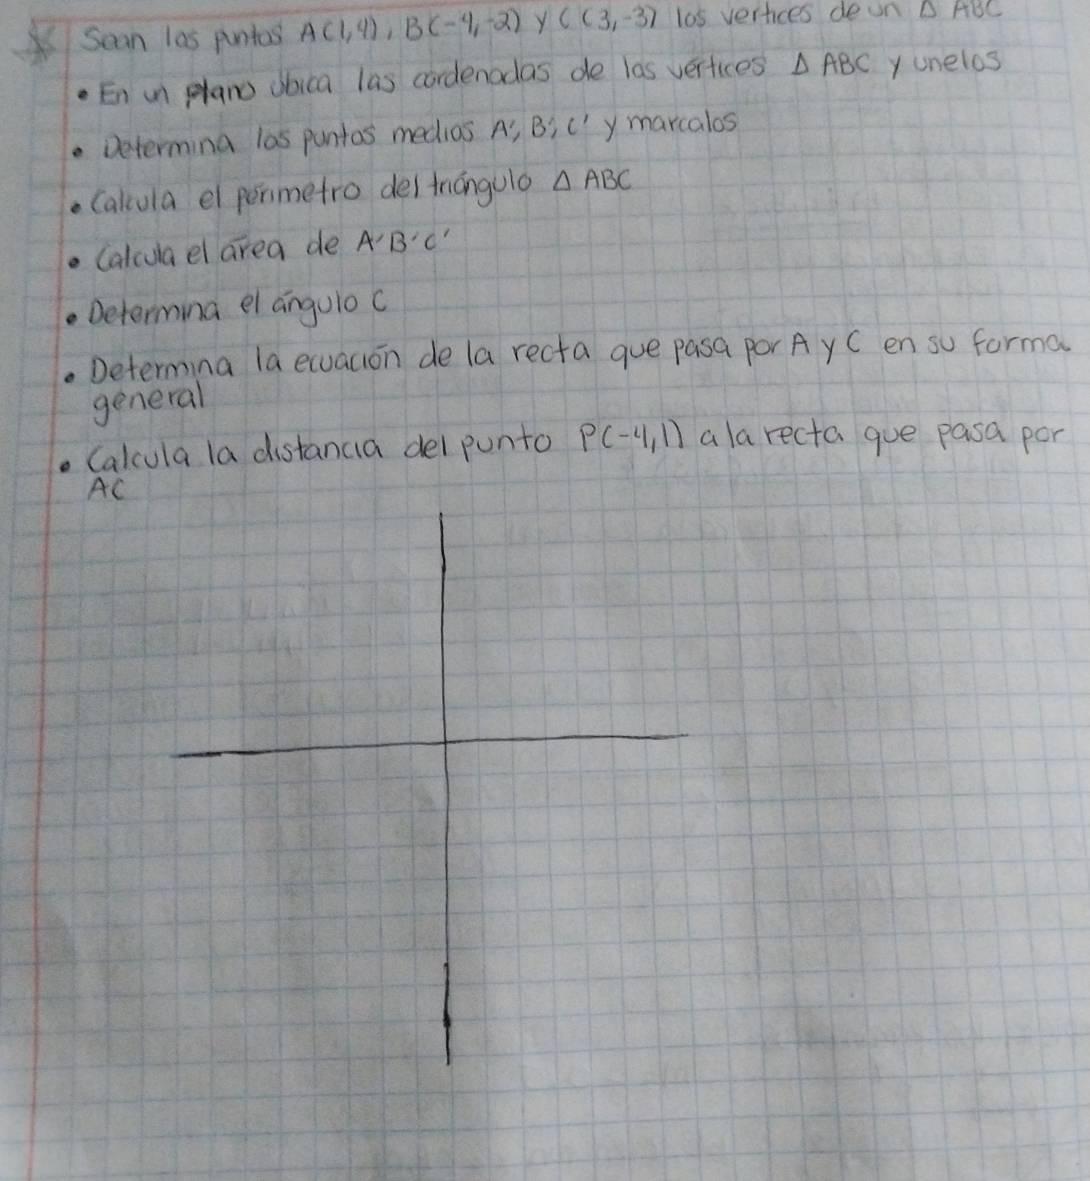 Sean los puntos A(1,4), B(-4,-2) y C(3,-3) los vertices de un Δ ABC
• En un plano ubica las cordenadas de los vértices Δ ABC y unelos
• Determina los puntos medios A', B', C' y marcalos
• Calcula el perímetro del triángulo Δ ABC
• Calcula el área de A'B'C'
• Determina el ángulo C
• Determina la ecuación de la recta que pasa por A y C en su forma
general
• Calcula la distancia del punto P(-4,1) a la recta que pasa por
AC